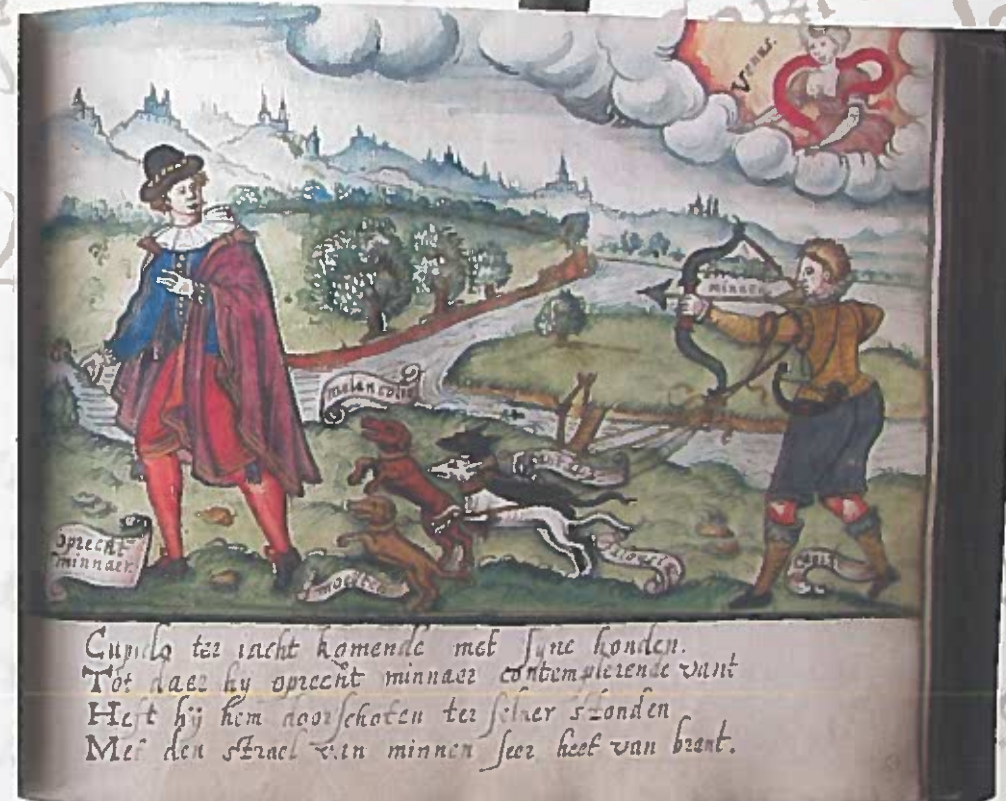 Venus.
minnen
melancolie
oprecht
minnaer.
moeyten
Cupido ter iacht komende met syne honden.
Tot daer hy oprecht minnaer contemplerende vant
Heft hij hem doorschoten ter selver stonden
Met den strael van minnen seer heet van brant.